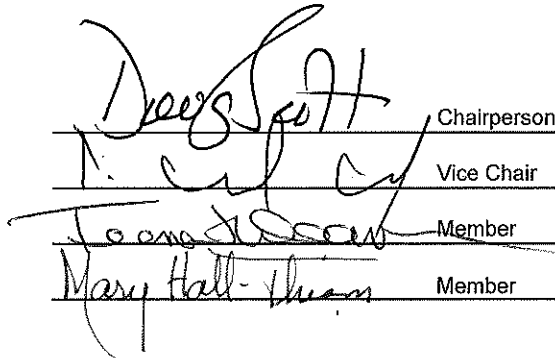 Doug Scott Chairperson
Vice Chair
Joana Member
Mary Hall-Thiam Member